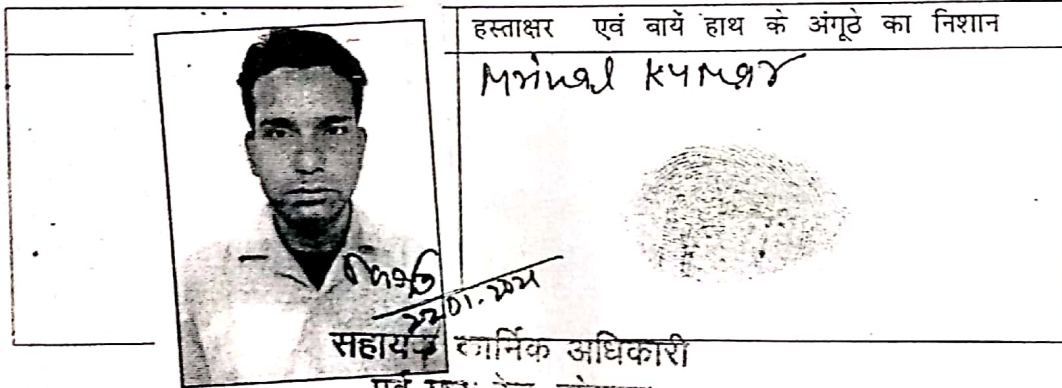 हस्ताक्षर एवं बायें हाथ के अंगूठे का निशान
Mrinal Kumar
22/01.2021
सहायक कार्मिक अधिकारी
पूर्व मध्य रेल